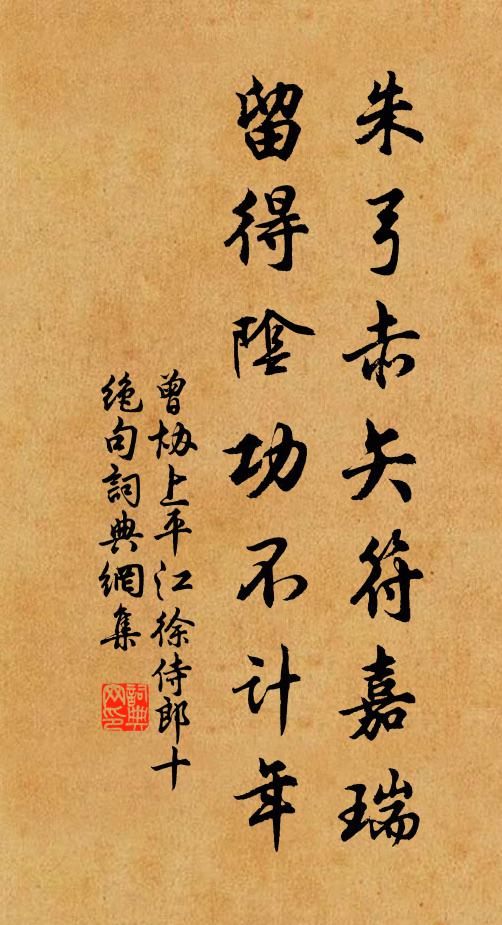 朱弓赤矢符嘉瑞
留得陰功不計年
曾協上平江徐侍郎十
絕句詞典網集
詞典
网印